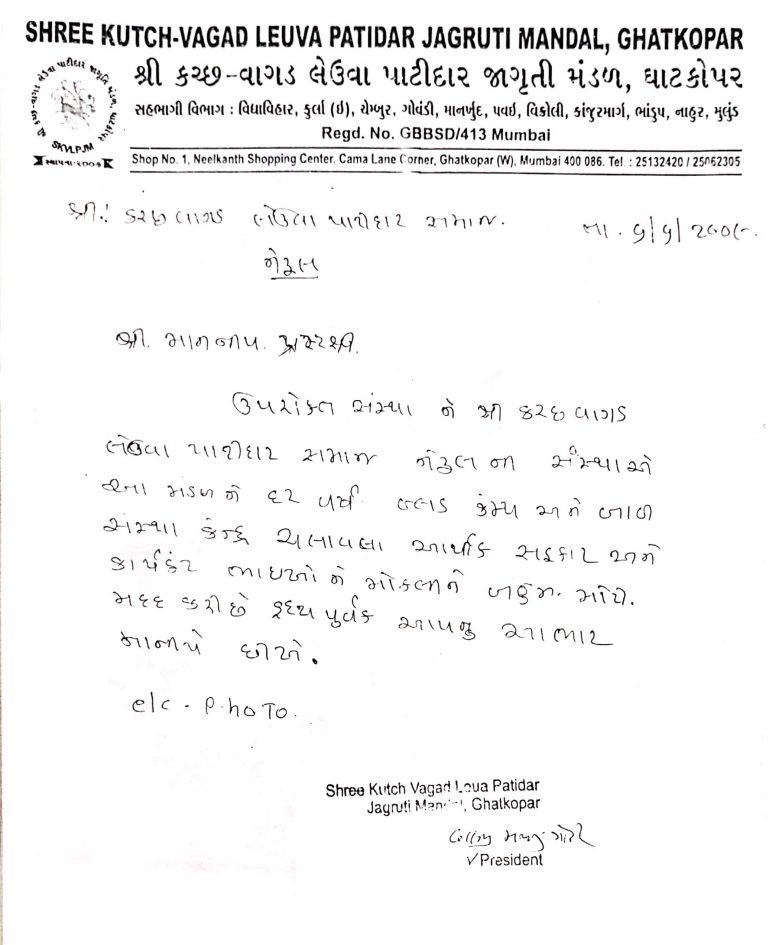 SHREE KUTCH-VAGAD LEUVA PATIDAR JAGRUTI MANDAL, GHATKOPAR
શ્રી કચ્છ-વાગડ લેઉવા પાટીદાર જાગૃતી મંડળ, ઘાટકોપર
સહભાગી વિભાગ : વિદ્યાવિહાર, કુર્લા (ઇ), ચેમ્બુર, ગોવંડી, માનખુર્દ, પવઇ, વિક્રોલી, કાંજુરમાર્ગ, ભાંડુપ, નાહુર, મુલુંડ
Regd. No. GBBSD/413 Mumbai
SKVLPJM
સ્થાપના-૨૦૦૧
Shop No. 1, Neelkanth Shopping Center, Cama Lane Corner, Ghatkopar (W), Mumbai 400 086. Tel. : 25132420 / 25062305
શ્રી. કચ્છ વાગડ લેઉવા પાટીદાર સમાજ.
તા. ૫/૫/૨૦૦૮.
નેરૂલ
શ્રી. માનનીય.
ઉપરોક્ત સંસ્થા ને શ્રી કચ્છ વાગડ
લેઉવા પાટીદાર સમાજ નેરૂલ ના સંસ્થાએ
આ મંડળ ને દર વર્ષે બ્લડ કેમ્પ અને
સંસ્થા કેન્દ્ર ચલાવવા આર્થીક સહકાર અને
ભાઇઓ ને મોકલીને
મદદ કરી છે હૃદય પુર્વક આપનુ આભાર
માનીયે છીએ.
e/c - PhoTo.
Shree Kutch Vagad Leua Patidar
Jagruti Mandal, Ghatkopar
President